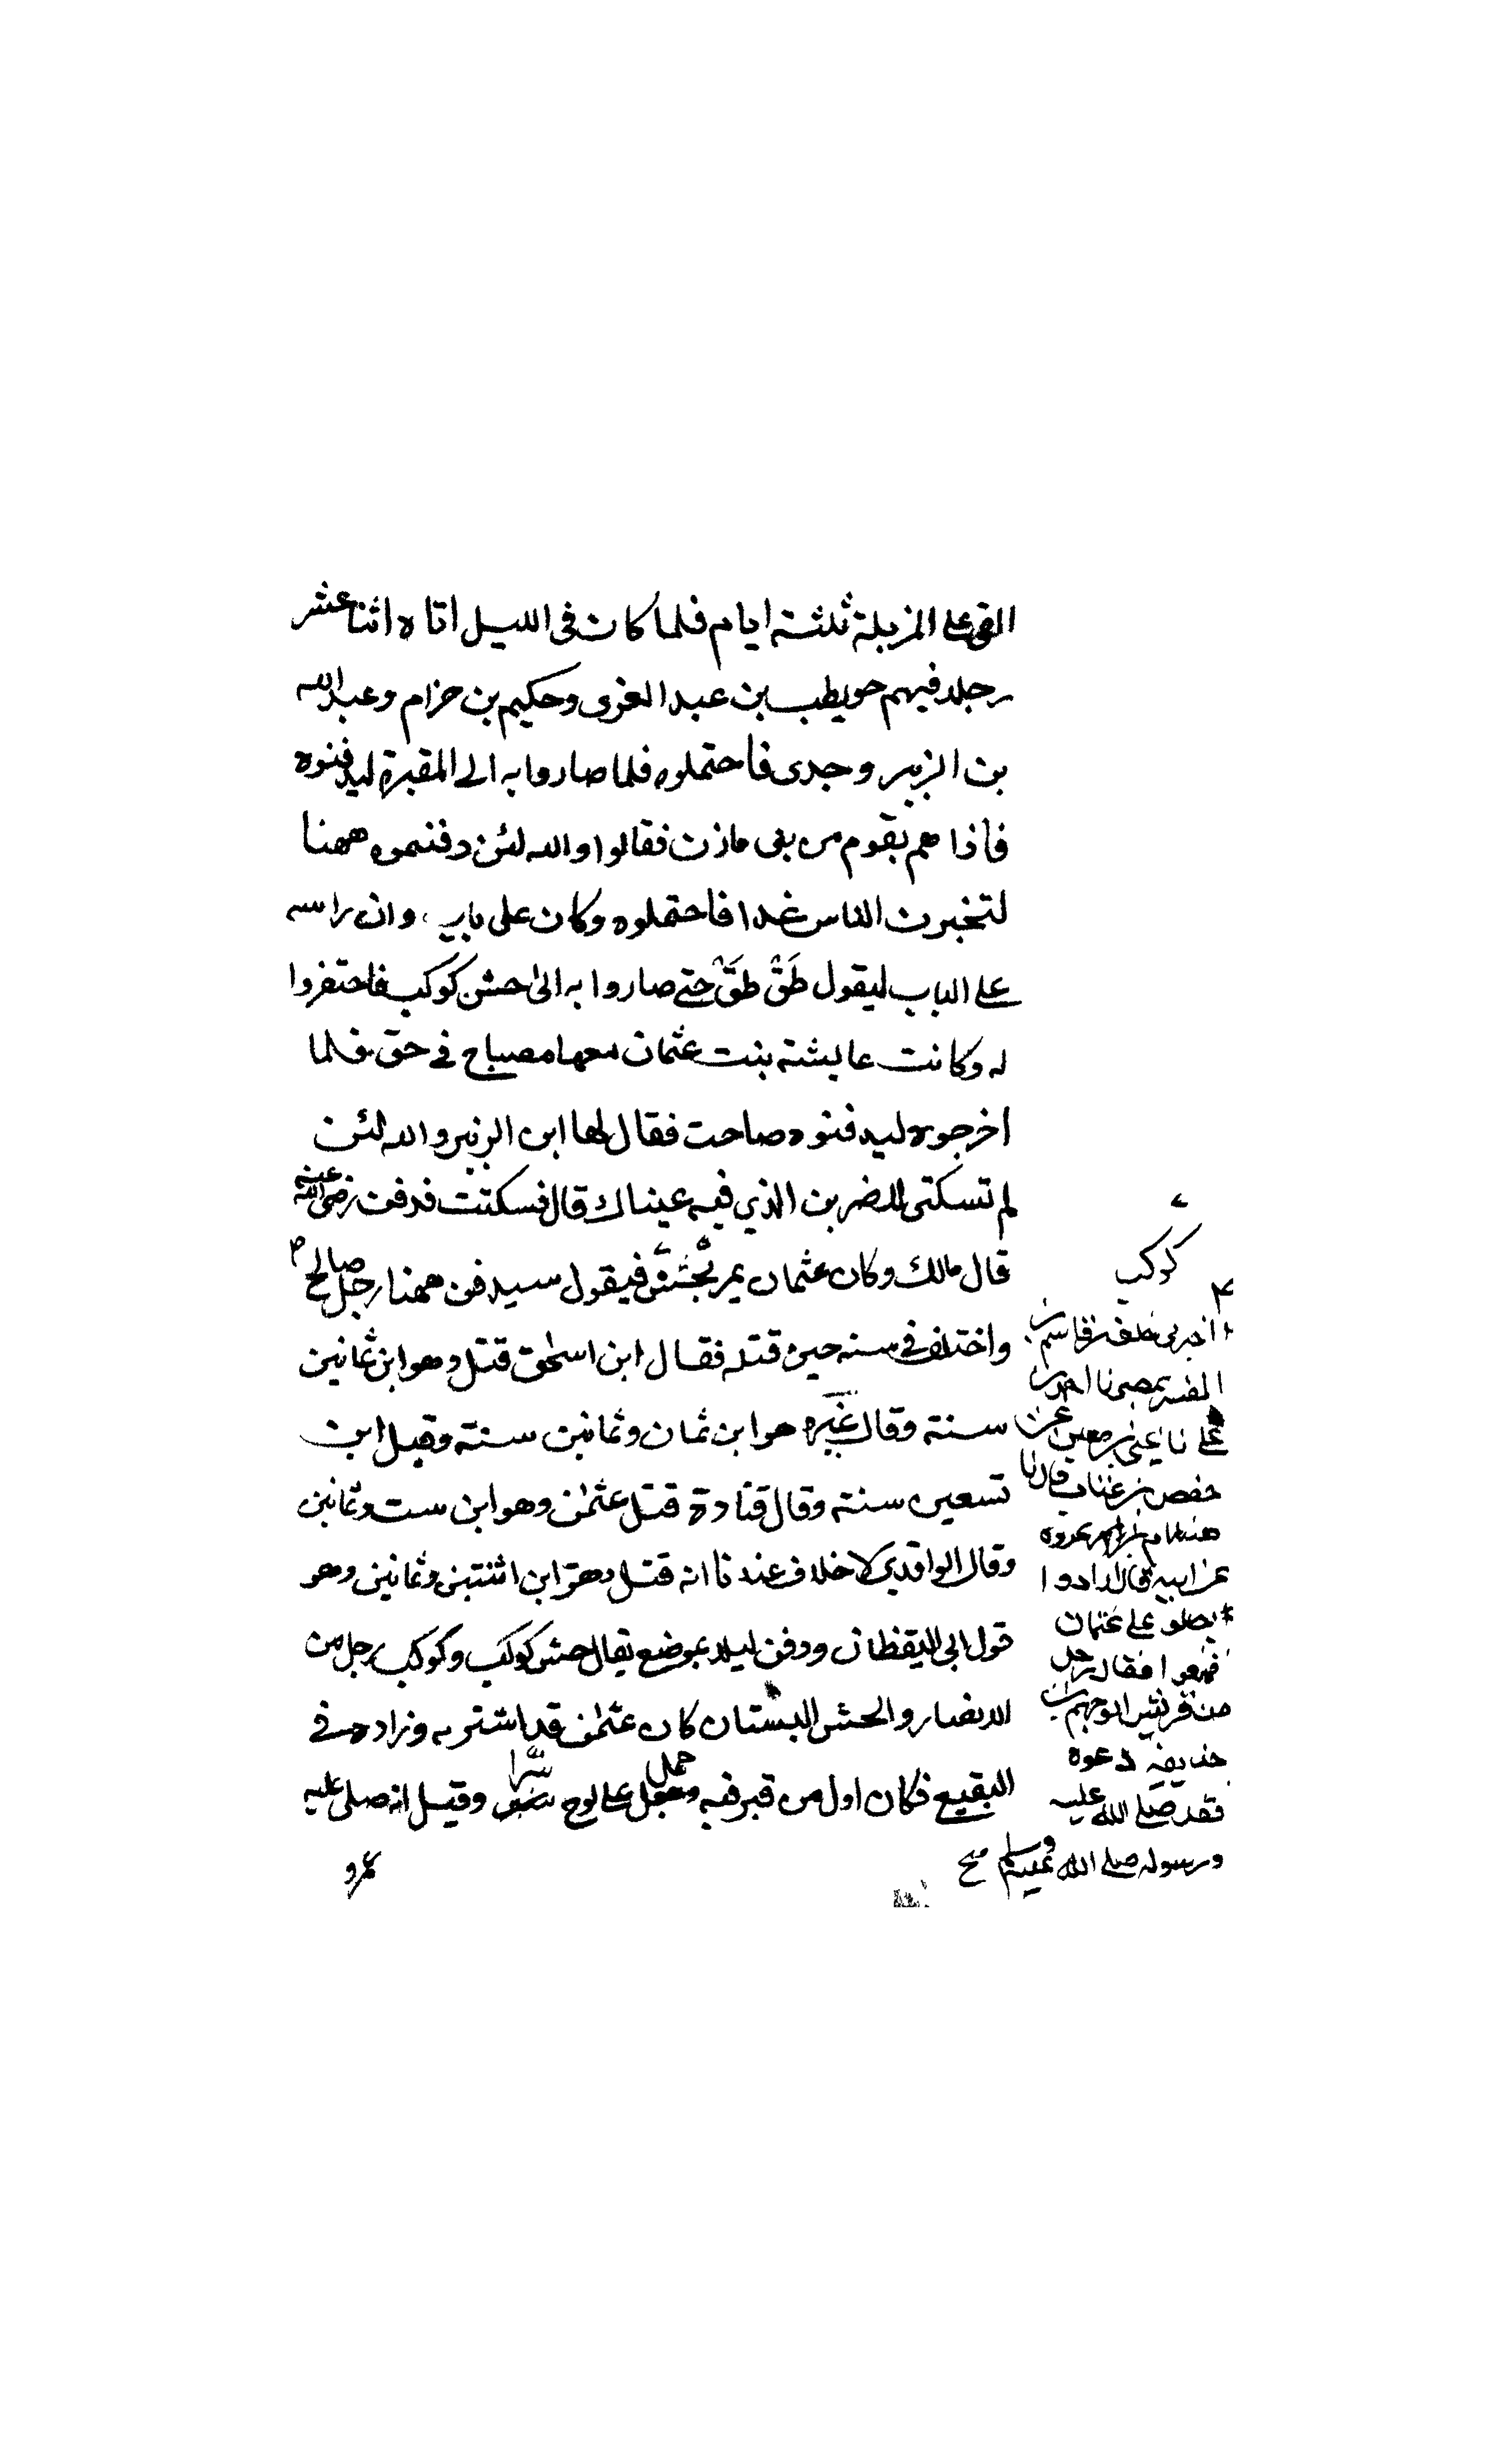 القى على المزبلة ثلثة ايام فلما كان فى الليل اتاه اثنا عشر
رجلا فيهم حويطب بن عبد العزى وحكيم بن حزام وعبد الله
بن الزبير وجدى فاحتملوه فلما صاروا به الى المقبرة ليدفنوه
فاذا هم بقوم من بنى مازن فقالوا والله لئن دفنتموه ههنا
لتخبرن الناس غدا فاحتملوه وكان على باب وان راسه
على الباب ليقول طَقْ طَقْ حتى صاروا به الى حش كوكب فاحتفروا
له وكانت عايشة بنت عثمان معها مصباح فى حق فلما
اخرجوه ليدفنوه صاحت فقال لها ابن الزبير والله لئن
لم تسكتى لاضربن الذي فيه عيناك قال فسكتت فدفن رضى الله عنه
قال مالك وكان عثمان يمر بحش فيقول سيدفن ههنا رجل صالح
واختلف فى سنه حين قتله فقال ابن اسحق قتل وهو ابن ثمانين
سنة وقال غيره هو ابن ثمان وثمانين سنة وقيل ابن
تسعين سنة وقال قتادة قتل عثمن وهو ابن ست وثمانين
وقال الواقدي لا خلاف عندنا انه قتل وهو ابن اثنتين وثمانين وهو
قول ابى اليقظان ودفن ليلا بموضع يقال حش كوكب وكوكب رجل من
الانصار والحش البستان كان عثمن قد اشتريه وزاده فى
البقيع فكان اول من قبر فيه وحمل على لوح سرا وقيل انه صلى عليه
عمرو
كوكب
اخبرنى خلف بن قاسم بن
المفسر بمصر نا احمد بن
على نا يحيى بن معين عن
حفص بن غياث قال نا
هشام بن عروه
عن ابيه قال ارادوا
يصلو على عثمان
فمنعوا فقال رجل
من قريش ابو جهم بن
حذيفة دعوه
فقد صلى الله عليه
ورسوله صلى الله عليه وسلم صح